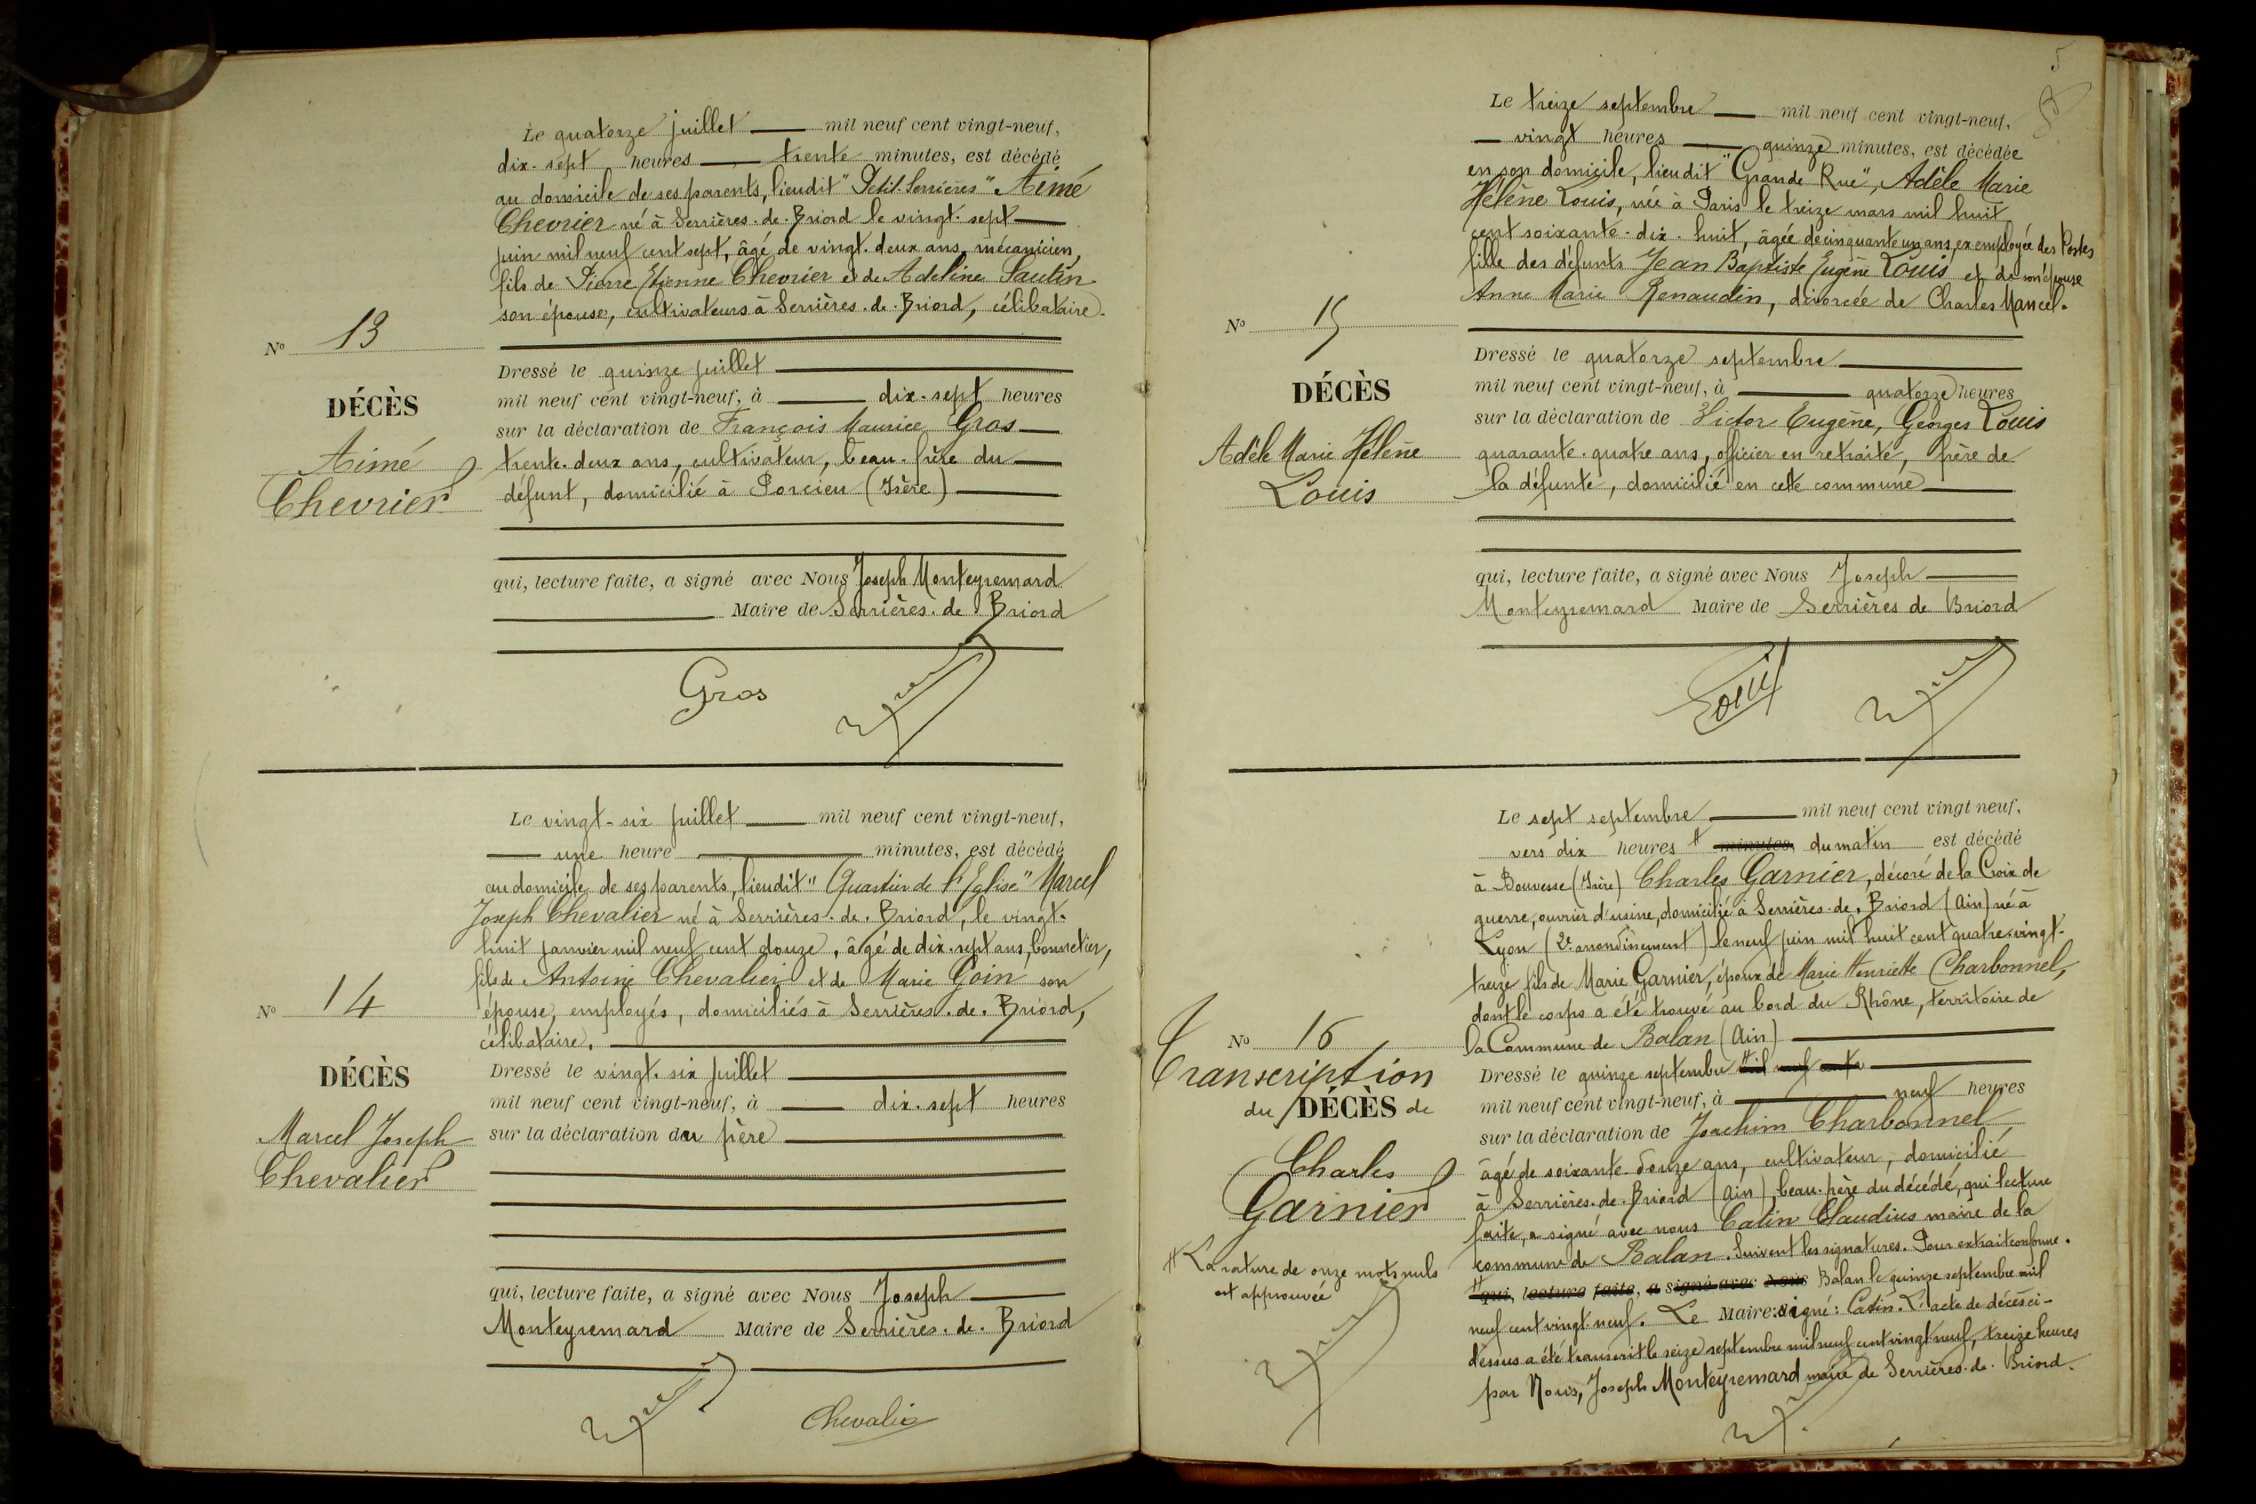 Le quatorze juillet mil neuf cent vingt-neuf,
dix-sept heures trente minutes, est décédé
au domicile de ses parents, lieudit "Petit-Serrières" Aimé
Chevrier né à Serrières-de-Briord le vingt-sept
juin mil neuf cent sept, âgé de vingt-deux ans, mécanicien,
fils de Pierre Etienne Chevrier et de Adeline Sautin
son épouse, cultivateurs à Serrières-de-Briord, célibataire.
No 13
DÉCÈS
Aimé
Chevrier
Dressé le quinze juillet
mil neuf cent vingt-neuf, à dix-sept heures
sur la déclaration de François Maurice Gros
trente-deux ans, cultivateur, beau-frère du
défunt, domicilié à Porcieu (Isère)
qui, lecture faite, a signé avec Nous Joseph Monteyremard
Maire de Serrières-de-Briord
Gros
Le vingt-six juillet mil neuf cent vingt-neuf,
une heure minutes, est décédé
au domicile de ses parents, lieudit "Quartier de l'Eglise" Marcel
Joseph Chevalier né à Serrières-de-Briord, le vingt-
huit janvier mil neuf cent douze, âgé de dix-sept ans, bonnetier,
fils de Antoine Chevalier et de Marie Goin son
épouse, employés, domiciliés à Serrières-de-Briord,
célibataire.
No 14
DÉCÈS
Marcel Joseph
Chevalier
Dressé le vingt-six juillet
mil neuf cent vingt-neuf, à dix-sept heures
sur la déclaration du père
qui, lecture faite, a signé avec Nous Joseph
Monteyremard Maire de Serrières-de-Briord
Chevalier
5
Le treize septembre mil neuf cent vingt-neuf,
vingt heures quinze minutes, est décédée
en son domicile, lieudit "Grande Rue", Adèle Marie
Hélène Louis, née à Paris le treize mars mil huit
cent soixante-dix-huit, âgée de cinquante un ans, ex employée des Postes
fille des défunts Jean Baptiste Eugène Louis et de son épouse
Anne Marie Renaudin, divorcée de Charles Mancel.
No 15
DÉCÈS
Adèle Marie Hélène
Louis
Dressé le quatorze septembre
mil neuf cent vingt-neuf, à quatorze heures
sur la déclaration de Victor Eugène, Georges Louis
quarante-quatre ans, officier en retraite, frère de
la défunte, domicilié en cette commune
qui, lecture faite, a signé avec Nous Joseph
Monteyremard Maire de Serrières de Briord
Louis
Le sept septembre mil neuf cent vingt neuf,
vers dix heures # minutes, du matin est décédé
à Bouvesse (Isère) Charles Garnier, décoré de la Croix de
guerre, ouvrier d'usine, domicilié à Serrières-de-Briord (Ain) né à
Lyon (2e arrondissement) le neuf juin mil huit cent quatre-vingt-
treize fils de Marie Garnier, époux de Marie Henriette Charbonnel,
dont le corps a été trouvé au bord du Rhône, territoire de
la Commune de Balan (Ain)
No 16
Transcription
du DÉCÈS de
Charles
Garnier
# La rature de onze mots nuls
est approuvée
Dressé le quinze septembre mil neuf cent
mil neuf cent vingt-neuf, à neuf heures
sur la déclaration de Joachim Charbonnel
âgé de soixante-douze ans, cultivateur, domicilié
à Serrières-de-Briord (Ain), beau-père du décédé, qui lecture
faite, a signé avec nous Catin Claudius maire de la
commune de Balan. Suivent les signatures. Pour extrait conforme.
# qui, lecture faite, a signé avec Nous Balan le quinze septembre mil
neuf cent vingt neuf. Le Maire: signé: Catin. L'acte de décès ci-
dessus a été transcrit le seize septembre mil neuf cent vingt neuf, treize heures
par Nous, Joseph Monteyremard maire de Serrières-de-Briord.